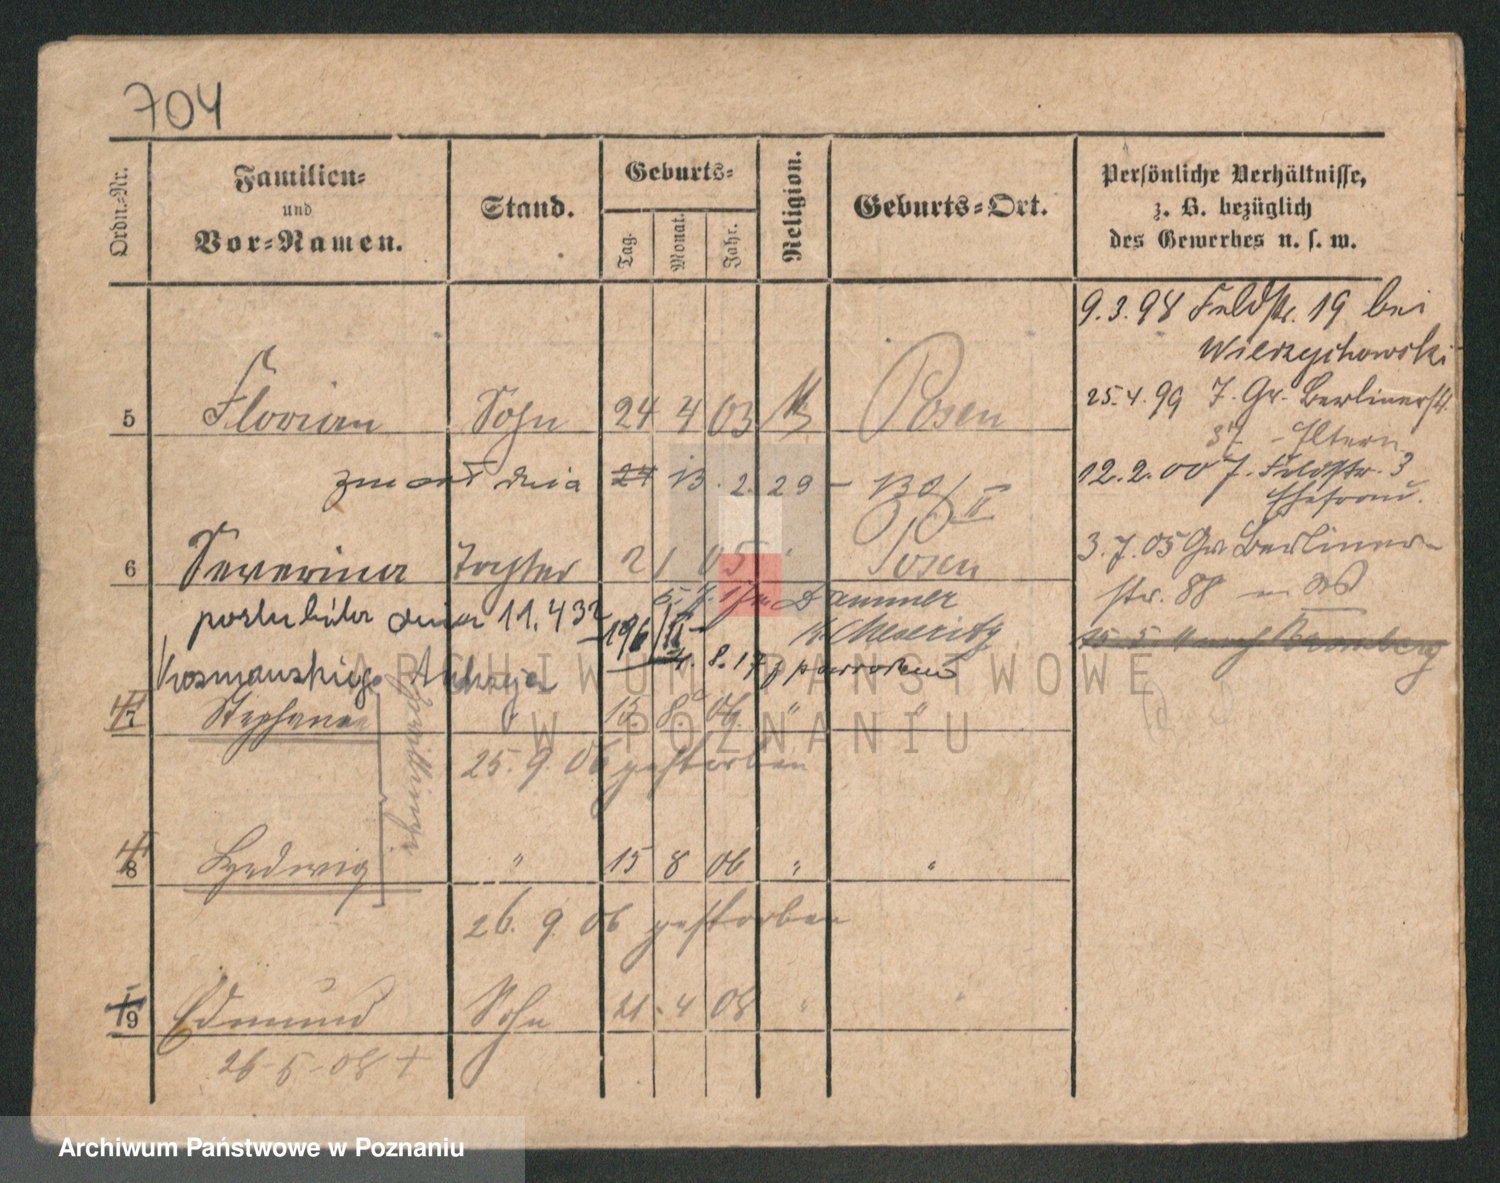 704
Ordn.-Nr.
Familien-
und
Vor-Namen.
Stand.
Geburts-
Tag. Monat. Jahr.
Religion.
Geburts-Ort.
Persönliche Verhältnisse,
z. B. bezüglich
des Gewerbes u. s. w.
9.3.98 Feldstr. 19 bei
Wierzychowski
25.4.99 7. Gr. Berlinerstr.
37 - Eltern
12.2.00 7. Feldstr. 3
Ehefrau.
3.7.05 Gr. Berliner-
str. 88
15.5. nach Bromberg
5 Florian Sohn 24 4 03 Posen
zmarł dnia 24 13. 2. 29 - 130/II
6 Severina Tochter 21 05 Posen
poślubiła dnia 11. 432
196/II
Dammer
4. 8. 17
Kosmowskiego
7 Stephanie 15. 8. 06. " "
25. 9. 06 gestorben
Zwillinge
8 Hedwig " 15 8 06 " "
26. 9. 06 gestorben
9 Edmund Sohn 21. 4 08 " "
26-5-08 +
ARCHIWUM PAŃSTWOWE
W POZNANIU
Archiwum Państwowe w Poznaniu